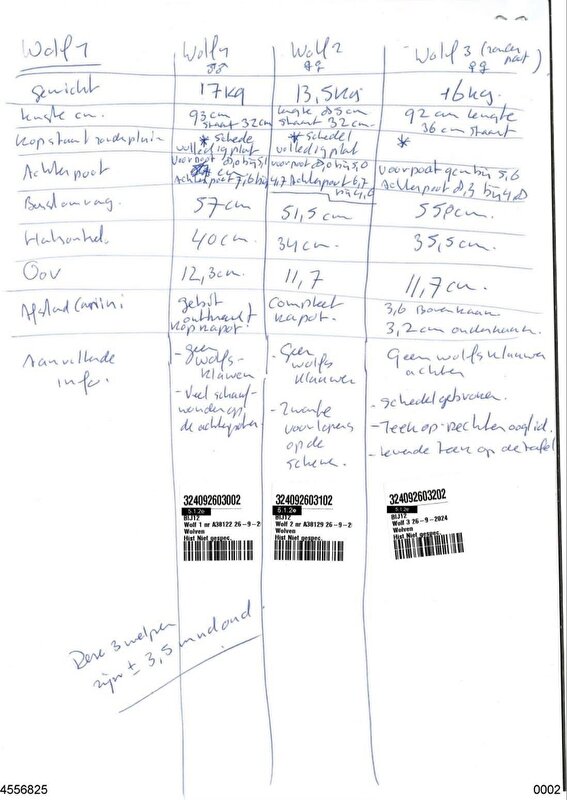 Wolf 1 Wolf 1 Wolf 2 Wolf 3 (zonder poot)
♂♂ ♀♀ ♀♀
Gewicht 17kg 13,5kg 16kg.
Lengte cm. 93cm staart 32cm lengte 85cm staart 32cm 92cm lengte 36cm staart
* schedel volledig plat * schedel volledig plat *
Achterpoot voorpoot 8,0 bij 5,1 cm voorpoot 8,0 bij 5,0 voorpoot geen bij 5,6
Achterpoot 7,6 bij 4,7 Achterpoot 6,7 bij 4,6 Achterpoot 8,3 bij 4,8
Borstomvang 57cm 51,5cm 55cm
40cm 34cm 35,5cm.
Oor 12,3cm. 11,7 11,7cm.
Afstand Canini gebit ontbreekt kop kapot. compleet kapot. 3,6 Bovenkaak
3,2cm onderkaak.
Aanvullende info.
- geen wolfs-
klauwen
- veel schaaf-
wonden op
de achterpoten
- Geen
wolfs
klauwen
- Zwarte
voorlopers
op de
schenen.
Geen wolfsklauwen
achter
- schedel gebroken.
- Teek op rechter ooglid.
- levende teek op de tafel
324092603002
5.1.2e
BIJ12
Wolf 1 nr A38122 26-9-2
Wolven
Hist Niet gespec.
324092603102
5.1.2e
BIJ12
Wolf 2 nr A38129 26-9-2
Wolven
Hist Niet gespec.
324092603202
5.1.2e
BIJ12
Wolf 3 26-9-2024
Wolven
Hist Niet gespec.
Deze 3 welpen
zijn ± 3,5 mnd oud
4556825
0002